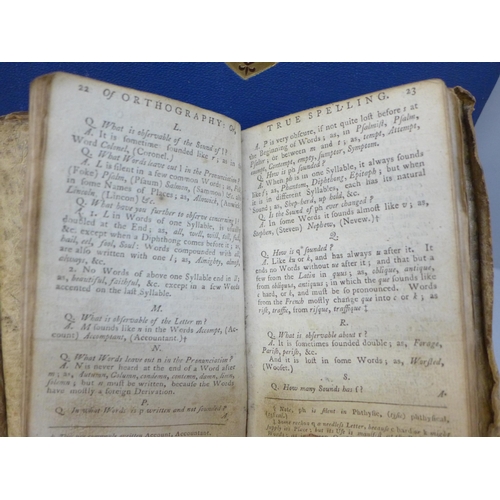 22 Of ORTHOGRAPHY: Or,
L.
Q. What is observable of the Sound of l?
A. It is sometimes founded like r; as in the
Word Colonel, (Coronel.)
Q. What Words leave out l in the Pronunciation?
A. L is silent in a few common Words; as,
(Foke) Psalm, (Psaum) Salmon, (Sammon)
in some Names of Places; as, Alnwick,
Lincoln (Lincon) &c.
Q. What have you further to observe concerning l?
A. 1. L in Words of one Syllable is
doubled at the End; as, all, well, will, toll, full,
&c. except when a Diphthong comes before it; as,
hail, eel, foul, Soul: Words compounded with all,
are also written with one l; as, Almighty, also,
always, &c.
2. No Words of above one Syllable end in ll;
as, beautiful, faithful, &c. except in a few Words
accented on the last Syllable.
M.
Q. What is observable of the Letter m?
A. M sounds like n in the Words Accompt, (Ac-
count) Accomptant, (Accountant.)
N.
Q. What Words leave out n in the Pronunciation?
A. N is never heard at the End of a Word after
m; as, Autumn, Column, condemn, contemn, damn, hymn,
solemn; but n must be written, because the Words
have mostly a foreign Derivation.
P.
Q. In what Words is p written and not sounded?
written Account, Accountant.
TRUE SPELLING. 23
A. P is very obscure, if not quite lost before s at
the Beginning of Words; as, in Psalmist, Psalm,
Psalter; or between m and t; as, tempt, Attempt,
Contempt, empty, jumpter, Symptom.
Q. How is ph sounded?
A. When ph is in one Syllable, it always sounds
like f; as, Phantom, Diphthong, Epitaph; but when
it is in different Syllables, each has its natural
Sound; as, Shep-herd, up-hold, &c.
Q. Is the Sound of ph ever changed?
A. In some Words it sounds almost like v; as,
Stephen, (Steven) Nephew, (Nevew.)
Q.
Q. How is q sounded?
A. Like ku or k, and has always u after it. It
ends no Words without ue after it; and that but a
few from the Latin in quus; as, oblique, antique,
from obliquus, antiquus; in which the que sounds like
k hard, or k, and must be so pronounced. Words
from the French mostly change que into c or k; as
risk, traffic, from risque, traffique.
R.
Q. What is observable about r?
A. It is sometimes sounded double; as, Forage,
Parish, perish, &c.
And it is lost in some Words; as, Worsted,
(Woosted).
S.
Q. How many Sounds has s?
A.
Note, ph is silent in Phthysic, phthysical,
needless Letter, because